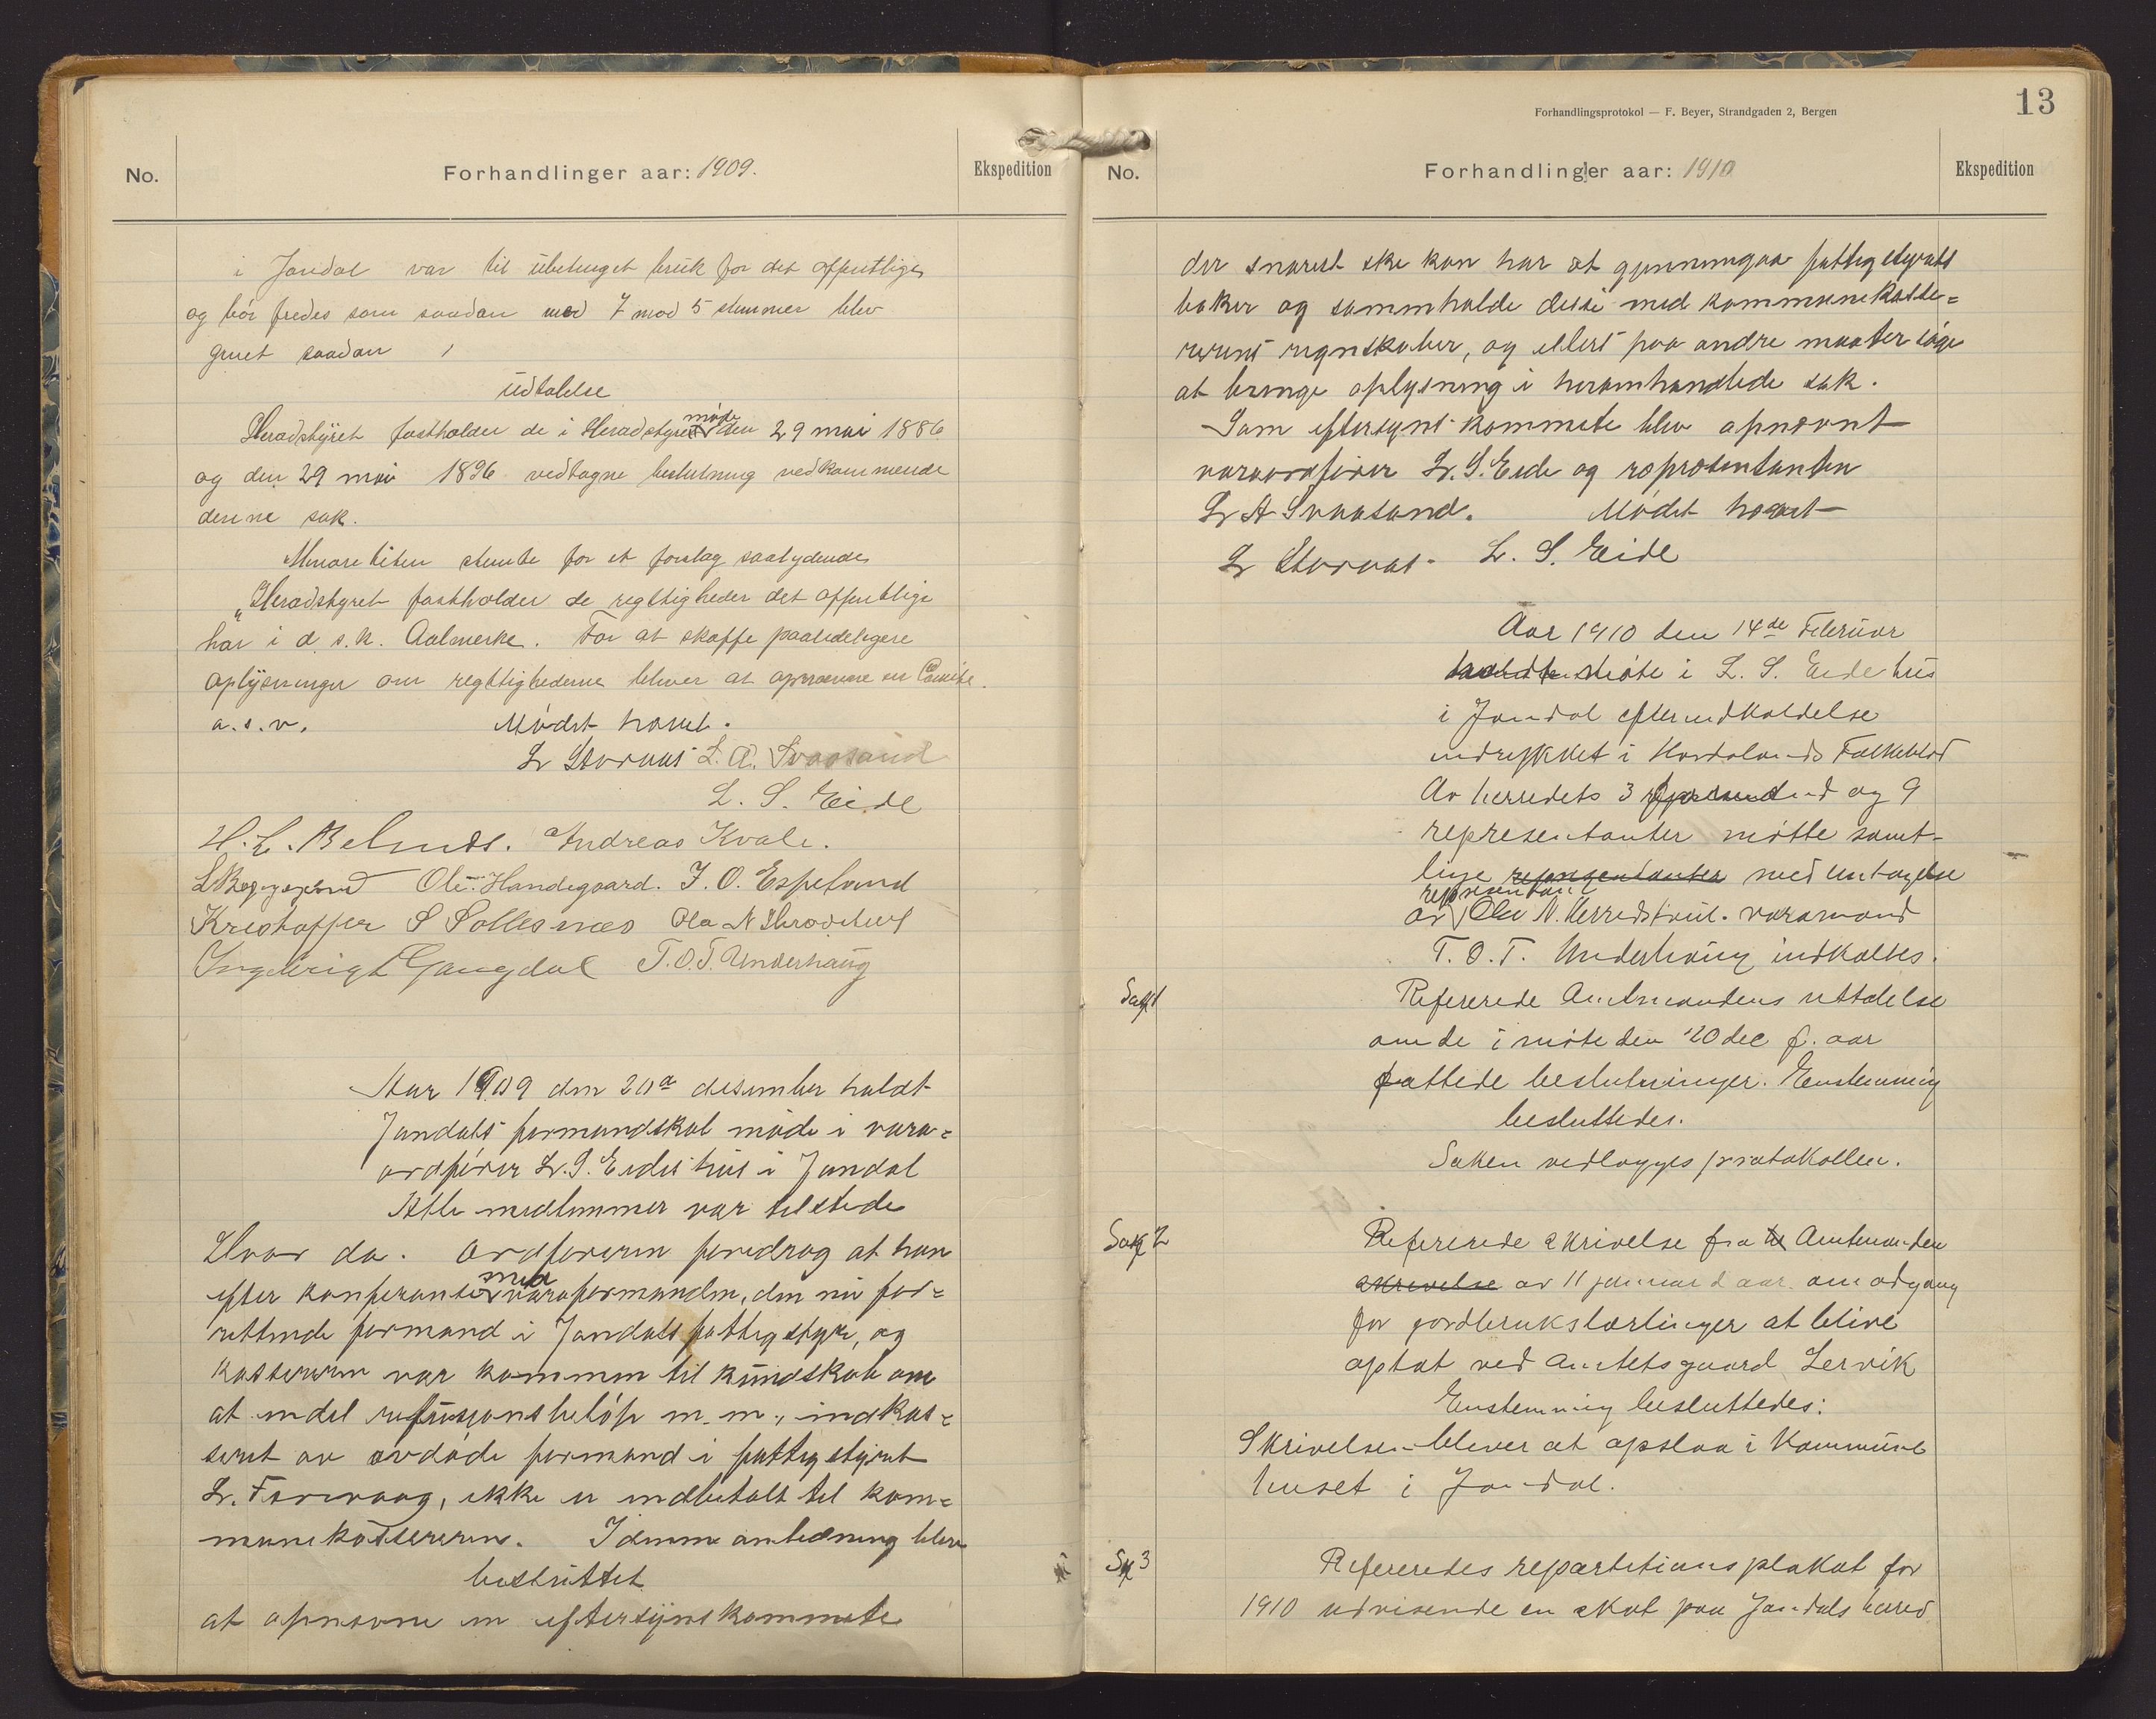 No.
Forhandlinger aar: 1909.
Ekspedition
i Jondal var til ubetinget bruk for det offentlige
og bör fredes som saadan med 7 mod 5 stemmer blev
gjuet saadan
udtalelse
Heradstyret fastholder de i Heradstyret møde den 29 mai 1886
og den 29 mai 1896 vedtagne beslutning vedkommende
denne sak.
Minoriteten stemte for et forslag saalydende
"Heradstyret fastholder de regttigheder det offentlige
har i d. s. k. Aalmerke. For at skaffe paalideligere
oplysninger om regttighederne bliver at opnævne en Comite.
o. s. v. Mödet hævet.
L. A. Svaasand
L. S. Eide
Andreas Kvale.
Ole Handegaard. J. O. Espeland
Kristoffer S Sollesnæs Ola N
Ingebrigt T. O. T. Underhaug
Aar 1909 den 20de desember holdt
Jondals formandskab möde i vara=
ordförer L. S. Eides hus i Jondal
Alle medlemmer var tilstede
Hvor da. Ordföreren foredrog at han
efter konferanse med varaformanden, den nu for=
rettende formand i Jondals fattigstyre, og
kassereren var kommen til kundskab om
at endel refusjonsbelöp m. m., indkas=
seret av avdöde formand i fattigstyret
L. ikke er indbetalt til kom=
munekassereren. I denne anledning blev
besluttet
at opnevne en eftersynskommite
Forhandlingsprotokol — F. Beyer, Strandgaden 2, Bergen
13
No.
Forhandlinger aar: 1910
Ekspedition
der snarest ske kan har at gjennemgaa fattigstyrets
böker og sammholde disse med kommunekasse=
rerens regnskaber, og ellers paa andre maater söge
at bringe oplysning i heromhandlede sak.
Som eftersyns-kommite blev opnævnt
varaordförer L. S. Eide og representanten
L A Svaasand. Mödet hævet
L. S. Eide
Aar 1910 den 14de Februar
holdtes Möte i L. S. Eide hus
i Jondal efter indkaldelse
indrykket i Hordalands Folkeblad
Av herredets 3 formænd og 9
representanter mötte samt-
lige representanter med untagelse
av representant Ola N. Herredstveit. varamand
T. O. T. Underhaug indkaltes.
Sak 1
Refererede Amtmandens uttalelse
om de i möte den 20 dec f. aar
fattede beslutninger. Enstemmig
besluttedes.
Saken vedlægges protokollen.
Sak 2
Refererede skrivelse fra Amtmanden
skrivelse av 11 januar d. aar om adgang
for jordbrukslærlinger at blive
optat ved Amtetsgaard Lervik
Enstemmig besluttedes:
Skrivelsen bliver at opslaa i Kommune
huset i Jondal.
Sak 3
Refereredes repartitionsplakat for
1910 udvisende en skat paa Jondals herred